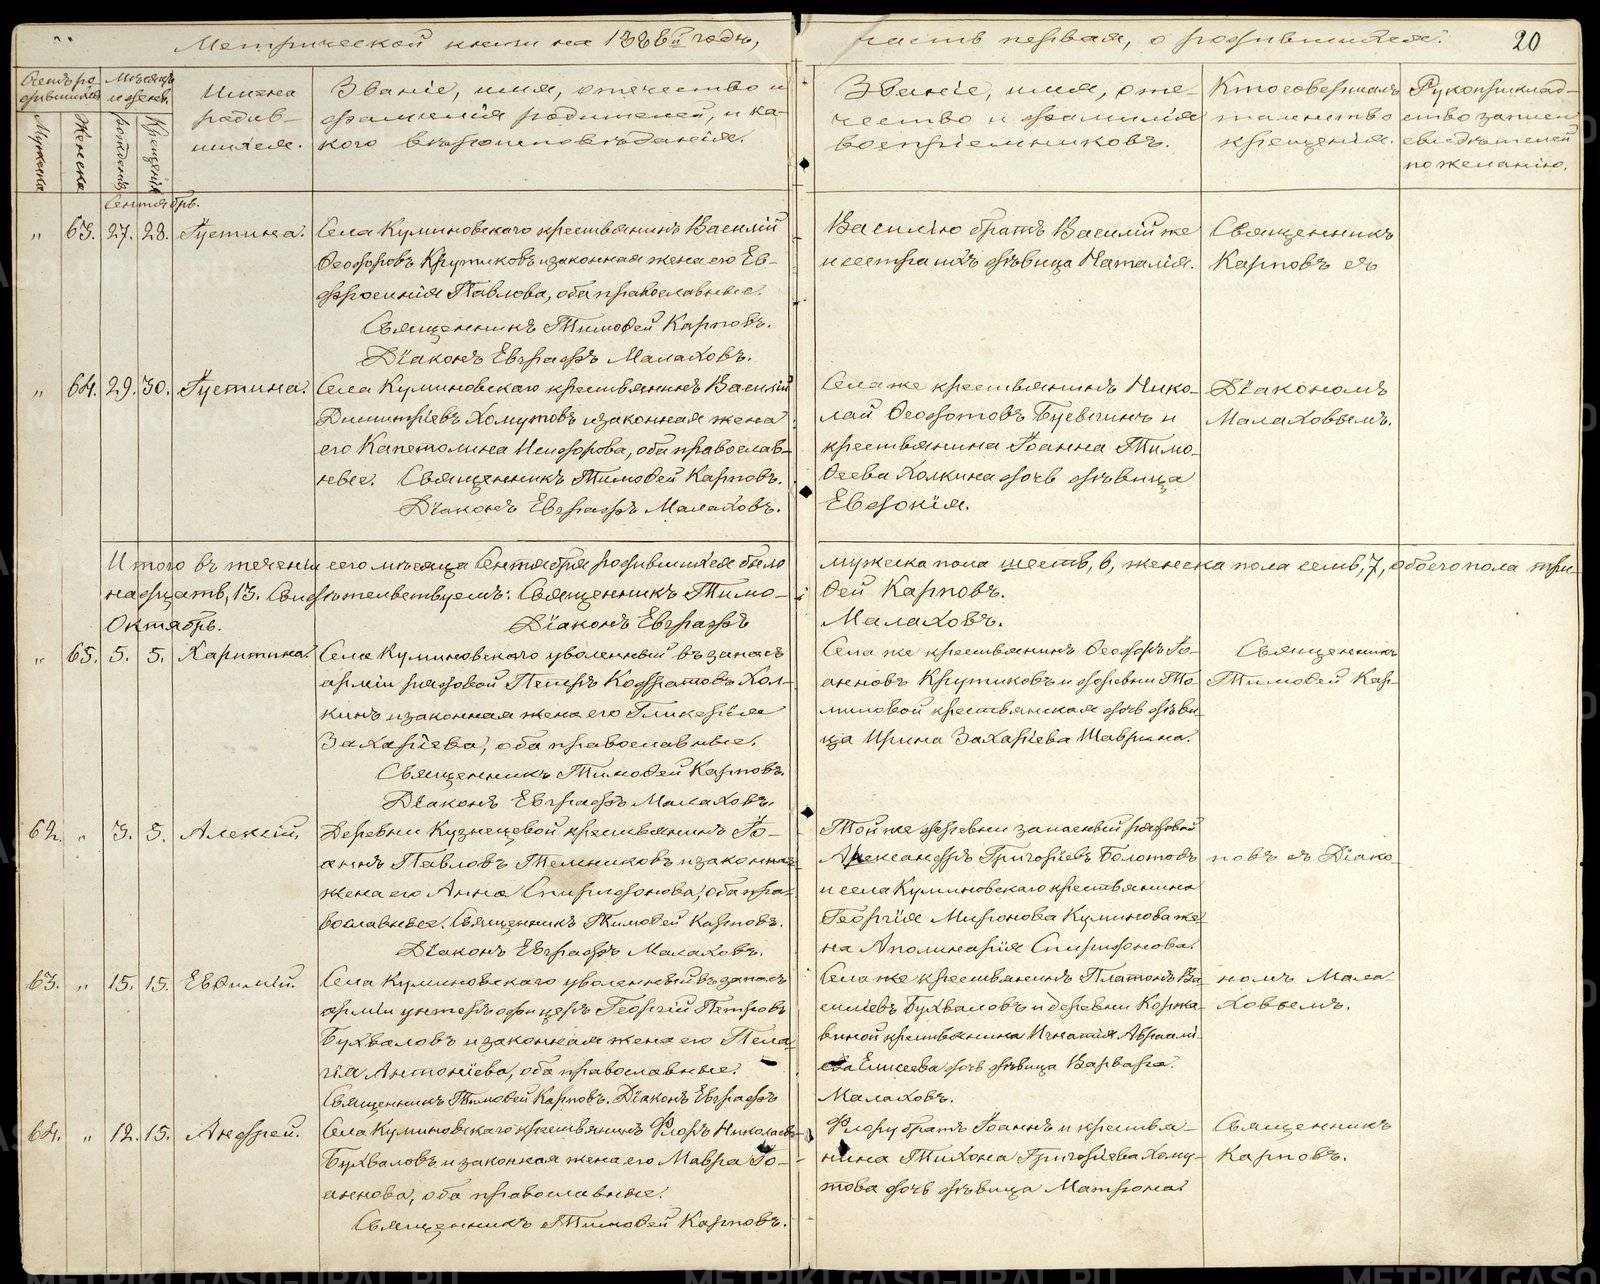 Метрической книги на 1886й годъ,
часть первая, о родившихся.
20
Счетъ ро-
дившихся
Мужска
Женска
Мѣсяцъ
и день.
рожденія
Крещенія
Имена
родив-
шихся.
Званіе, имя, отечество и
фамилія родителей, и ка-
кого вѣроисповѣданія.
Званіе, имя, оте-
чество и фамилія
воспріемниковъ.
Кто совершалъ
таинство
крещенія.
Рукоприклад-
ство записи
свидѣтелей
по желанію.
Сентябрь.
„ 63. 27. 28. Іустина.
Села Куминовскаго крестьянинъ Василій
Ѳеодоровъ Крутиковъ и законная жена его Ев-
фросинія Павлова, оба православные.
Священникъ Тимоѳей Карповъ.
Діаконъ Евграфъ Малаховъ.
Василію братъ Василій же
и сестра ихъ дѣвица Наталія.
Священникъ
Карповъ съ
„ 64. 29. 30. Іустина.
Села Куминовскаго крестьянинъ Василій
Димитріевъ Хомутовъ и законная жена
его Капетолина Исидорова, оба православ-
ные. Священникъ Тимоѳей Карповъ.
Діаконъ Евграфъ Малаховъ.
Села же крестьянинъ Нико-
лай Ѳеодотовъ и
крестьянина Іоанна Тимо-
ѳеева Холкина дочь дѣвица
Евдокія.
Діакономъ
Малаховымъ.
Итого въ теченіи сего мѣсяца Сентября родившихся было
мужеска пола шесть, 6, женска пола семь, 7, обоего пола три-
надцать, 13. Свидѣтельствуемъ: Священникъ Тимо-
ѳей Карповъ.
Октябрь.
Діаконъ Евграфъ
Малаховъ.
„ 65. 5. 5. Харитина.
Села Куминовскаго уволенный въ запасъ
арміи рядовой Петръ Кодратовъ Хол-
кинъ и законная жена его Гликерія
Захаріева, оба православные.
Священникъ Тимоѳей Карповъ.
Діаконъ Евграфъ Малаховъ.
Села же крестьянинъ Ѳеодоръ Іо-
анновъ Крутиковъ и деревни То-
миловой крестьянская дочь дѣви-
ца Ирина Захаріева Шаврина.
Священникъ
Тимоѳей Кар-
62. „ 3. 5. Алексій.
Деревни Кузнецевой крестьянинъ Іо-
аннъ Павловъ Телениковъ и законная
жена его Анна Спиридонова, оба пра-
вославные. Священникъ Тимоѳей Карповъ.
Діаконъ Евграфъ Малаховъ.
Той же деревни запасный рядовой
Александръ Григоріевъ Болотовъ
и села Куминовскаго крестьянина
Георгія Миронова Куминова же-
на Аполинарія Спиридонова.
повъ съ Діако-
63. „ 15. 15. Евѳимій.
Села Куминовскаго уволенный въ запасъ
арміи унтеръ офицеръ Георгій Петровъ
Бухваловъ и законная жена его Пела-
гія Антоніева, оба православные.
Священникъ Тимоѳей Карповъ. Діаконъ Евграфъ
Села же крестьянинъ Платонъ Ва-
силіевъ Бухваловъ и деревни Коржа-
виной крестьянина Игнатія Авраамі-
ева Елисеева дочь дѣвица Варвара.
Малаховъ.
номъ Мала-
ховымъ.
64. „ 12. 15. Андрей.
Села Куминовскаго крестьянинъ Флоръ Николаевъ
Бухваловъ и законная жена его Мавра Іо-
аннова, оба православные.
Священникъ Тимоѳей Карповъ.
Флору братъ Іоаннъ и крестья-
нина Тихона Григоріева Хому-
това дочь дѣвица Матрона.
Священникъ
Карповъ.